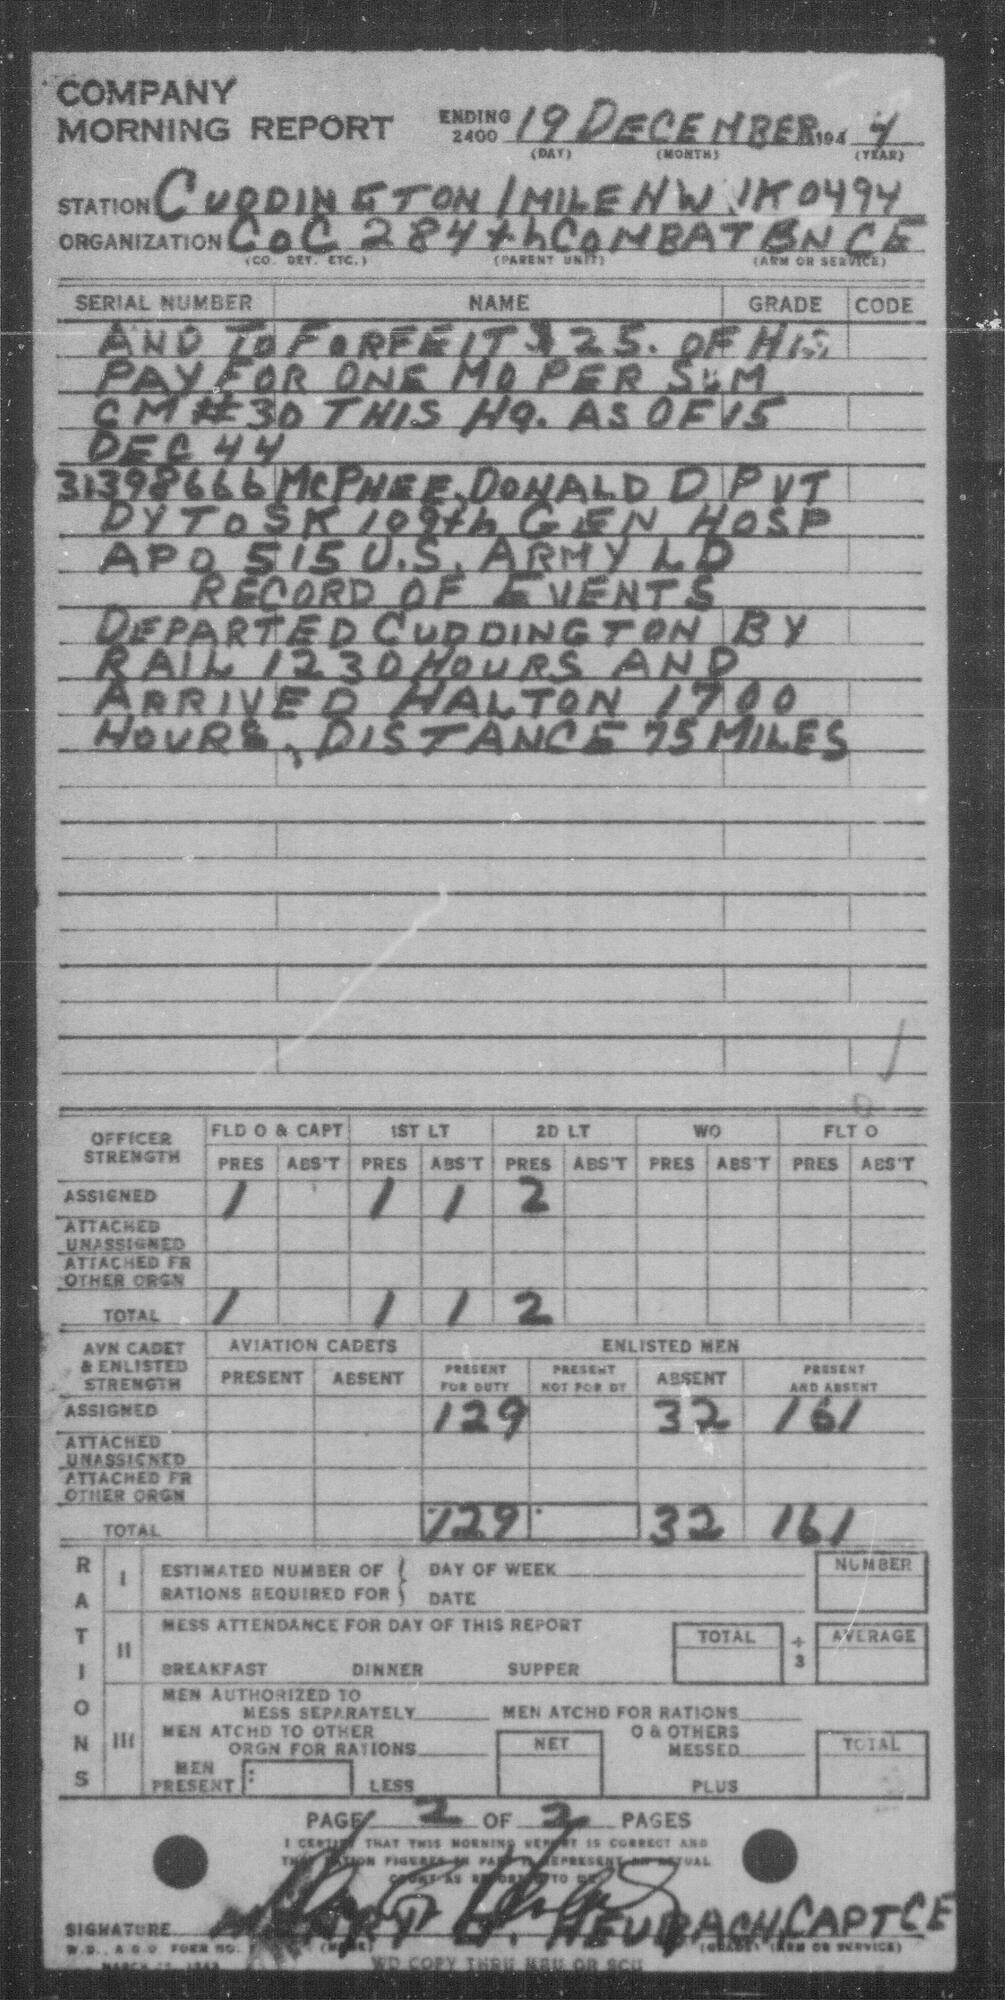 COMPANY
MORNING REPORT
ENDING 2400 19 DECEMBER 194 4
(DAY) (MONTH) (YEAR)
STATION CUDDINGTON 1 MILE NW VK0494
ORGANIZATION CO C 284th COMBAT BN CE
(CO. DET. ETC.) (PARENT UNIT) (ARM OR SERVICE)
SERIAL NUMBER NAME GRADE CODE
AND TO FORFEIT $25. OF HIS
PAY FOR ONE MO PER SUM
CM #30 THIS HQ. AS OF 15
DEC 44
31398666 MCPHEE, DONALD D PVT
DY TO SK 109th GEN HOSP
APO 515 U.S. ARMY LD
RECORD OF EVENTS
DEPARTED CUDDINGTON BY
RAIL 1230 HOURS AND
ARRIVED HALTON 1700
HOURS, DISTANCE 75 MILES
OFFICER STRENGTH FLD O & CAPT 1ST LT 2D LT WO FLT O
PRES ABS'T PRES ABS'T PRES ABS'T PRES ABS'T PRES ABS'T
ASSIGNED 1 1 1 2
ATTACHED UNASSIGNED
ATTACHED FR OTHER ORGN
TOTAL 1 1 1 2
AVN CADET & ENLISTED STRENGTH AVIATION CADETS ENLISTED MEN
PRESENT ABSENT PRESENT FOR DUTY PRESENT NOT FOR DY ABSENT PRESENT AND ABSENT
ASSIGNED 129 32 161
ATTACHED UNASSIGNED
ATTACHED FR OTHER ORGN
TOTAL 129 32 161
RATIONS
I ESTIMATED NUMBER OF RATIONS REQUIRED FOR DAY OF WEEK DATE NUMBER
II MESS ATTENDANCE FOR DAY OF THIS REPORT TOTAL ÷ 3 AVERAGE
BREAKFAST DINNER SUPPER
III MEN AUTHORIZED TO MESS SEPARATELY MEN ATCHD FOR RATIONS
MEN ATCHD TO OTHER ORGN FOR RATIONS NET O & OTHERS MESSED TOTAL
MEN PRESENT LESS PLUS
PAGE 2 OF 2 PAGES
I CERTIFY THAT THIS MORNING REPORT IS CORRECT AND
THAT RATION FIGURES IN PART II REPRESENT AN ACTUAL
COUNT AS REPORTED TO ME
SIGNATURE HENRY G. HEUBACH, CAPT CE
(NAME) (GRADE) (ARM OR SERVICE)
W.D., A G O FORM NO. 1
WD COPY THRU MRU OR SCU